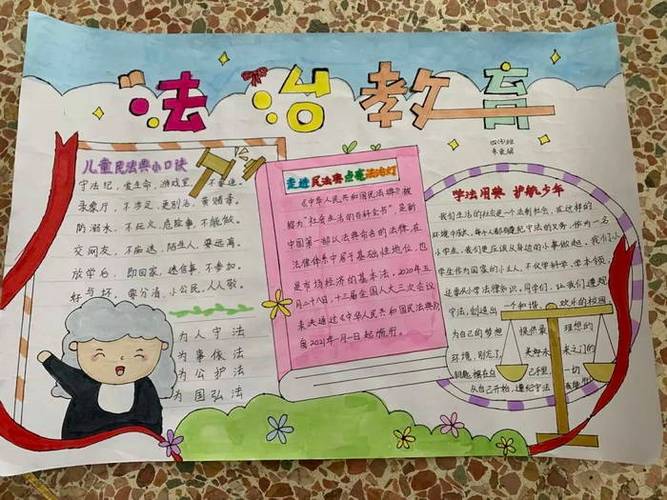 法治教育
儿童民法典小口诀
守法纪，爱生命，游戏里，不
录像厅，不涉足，更别沾，黄赌毒。
防溺水，不玩火，危险事，不能做。
交网友，不痴迷，陌生人，要远离。
放学后，即回家，迷信事，不参加。
好与坏，要分清，小公民，人人歌。
为人守法
为事依法
为公护法
为国弘法
走进民法典点亮法治灯
《中华人民共和国民法典》被
称为"社会生活的百科全书"，是新
中国第一部以法典命名的法律，在
法律体系中居于基础性地位，也
是市场经济的基本法。2020年五
月二十八日，十三届全国人大三次会议
表决通过了《中华人民共和国民法典》
自2021年一月一日起施行。
学法用典 护航少年
我们生活的社会是一个法制社会，在这样的
环境中成长，每个人都有遵纪守法的义务，作为一名
小学生，我们更应该从身边的小事做起，我们小
学生作为国家的小主人，不仅学科学，学本领，
还要从小学法律知识，同学们，让我们遵规
守法，创造出一个和谐，欢乐的校园，
为自己的梦想提供最理想的
环境，别忘了，美好未来之门的
钥匙，握在自己手里，一切
从自己开始，遵纪守法